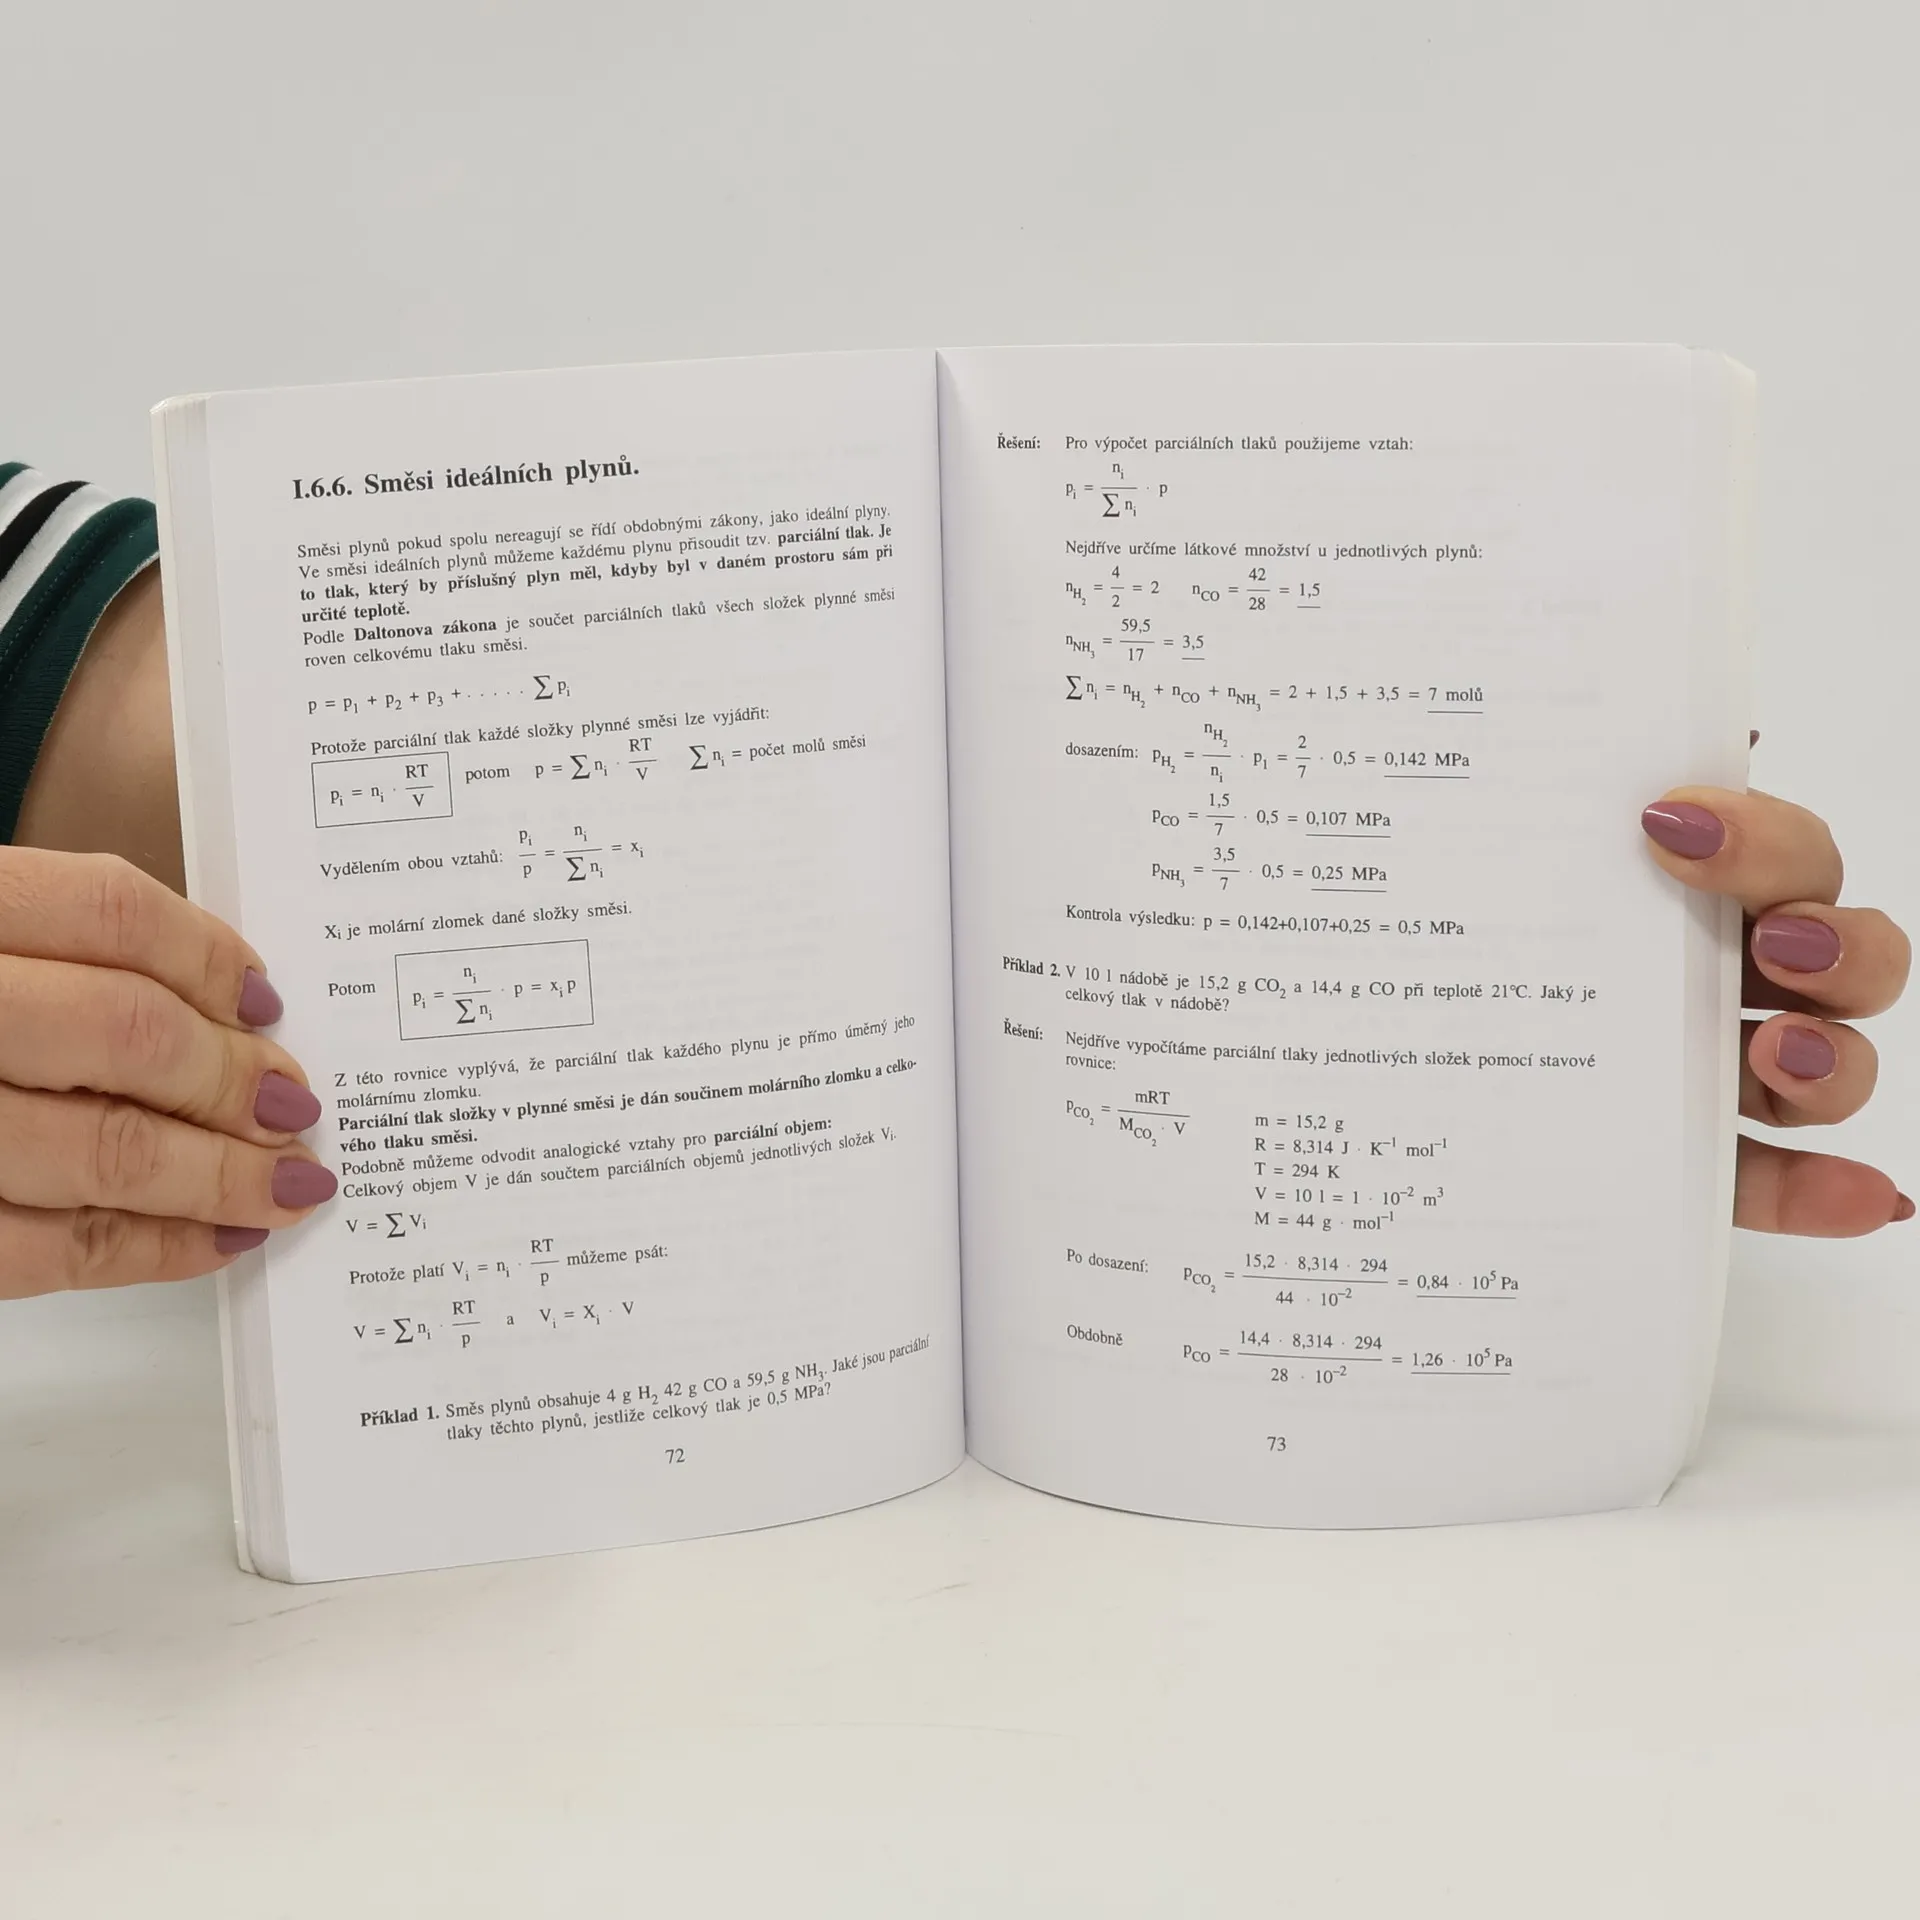 I.6.6. Směsi ideálních plynů.
Směsi plynů pokud spolu nereagují se řídí obdobnými zákony, jako ideální plyny.
Ve směsi ideálních plynů můžeme každému plynu přisoudit tzv. parciální tlak. Je
to tlak, který by příslušný plyn měl, kdyby byl v daném prostoru sám při
určité teplotě.
Podle Daltonova zákona je součet parciálních tlaků všech složek plynné směsi
roven celkovému tlaku směsi.
p = p₁ + p₂ + p₃ + . . . . . ∑ pᵢ
Protože parciální tlak každé složky plynné směsi lze vyjádřit:
pᵢ = nᵢ · RT/V potom p = ∑ nᵢ · RT/V ∑ nᵢ = počet molů směsi
Vydělením obou vztahů: pᵢ/p = nᵢ/∑ nᵢ = xᵢ
Xᵢ je molární zlomek dané složky směsi.
Potom pᵢ = nᵢ/∑ nᵢ · p = xᵢ p
Z této rovnice vyplývá, že parciální tlak každého plynu je přímo úměrný jeho
molárnímu zlomku.
Parciální tlak složky v plynné směsi je dán součinem molárního zlomku a celko-
vého tlaku směsi.
Podobně můžeme odvodit analogické vztahy pro parciální objem:
Celkový objem V je dán součtem parciálních objemů jednotlivých složek Vᵢ.
V = ∑ Vᵢ
Protože platí Vᵢ = nᵢ · RT/p můžeme psát:
V = ∑ nᵢ · RT/p a Vᵢ = Xᵢ · V
Příklad 1. Směs plynů obsahuje 4 g H₂ 42 g CO a 59,5 g NH₃. Jaké jsou parciální
tlaky těchto plynů, jestliže celkový tlak je 0,5 MPa?
72
Řešení: Pro výpočet parciálních tlaků použijeme vztah:
pᵢ = nᵢ/∑ nᵢ · p
Nejdříve určíme látkové množství u jednotlivých plynů:
n_H₂ = 4/2 = 2 n_CO = 42/28 = 1,5
n_NH₃ = 59,5/17 = 3,5
∑ nᵢ = n_H₂ + n_CO + n_NH₃ = 2 + 1,5 + 3,5 = 7 molů
dosazením: p_H₂ = n_H₂/nᵢ · p₁ = 2/7 · 0,5 = 0,142 MPa
p_CO = 1,5/7 · 0,5 = 0,107 MPa
p_NH₃ = 3,5/7 · 0,5 = 0,25 MPa
Kontrola výsledku: p = 0,142+0,107+0,25 = 0,5 MPa
Příklad 2. V 10 l nádobě je 15,2 g CO₂ a 14,4 g CO při teplotě 21°C. Jaký je
celkový tlak v nádobě?
Řešení: Nejdříve vypočítáme parciální tlaky jednotlivých složek pomocí stavové
rovnice:
p_CO₂ = mRT/M_CO₂ · V m = 15,2 g
R = 8,314 J · K⁻¹ mol⁻¹
T = 294 K
V = 10 l = 1 · 10⁻² m³
M = 44 g · mol⁻¹
Po dosazení: p_CO₂ = 15,2 · 8,314 · 294/44 · 10⁻² = 0,84 · 10⁵ Pa
Obdobně p_CO = 14,4 · 8,314 · 294/28 · 10⁻² = 1,26 · 10⁵ Pa
73